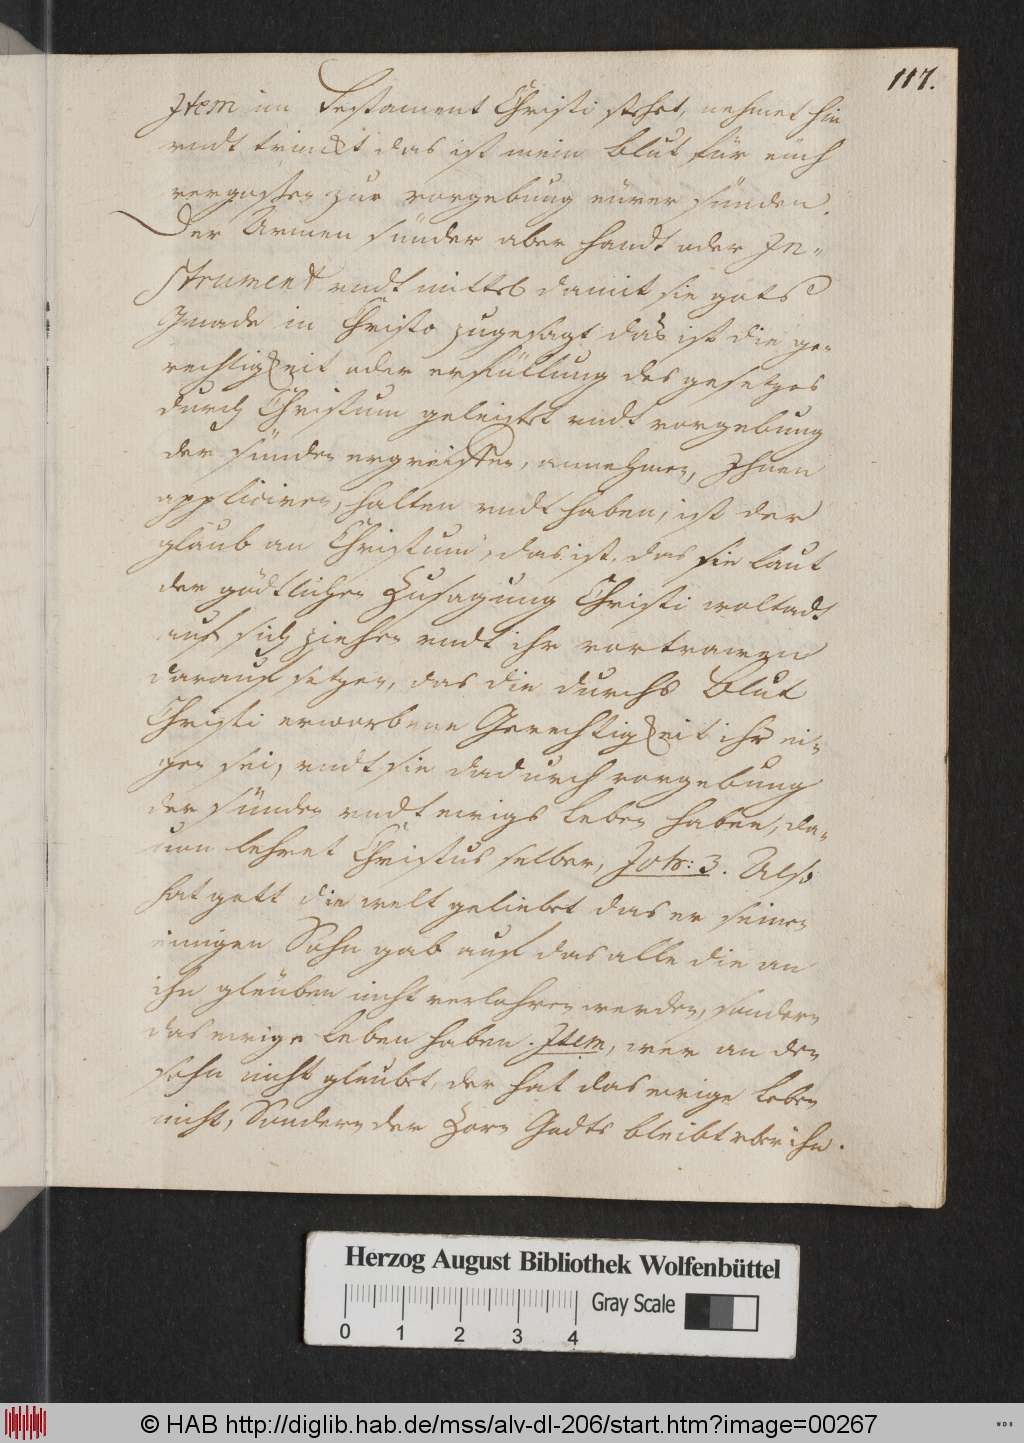 117.
Item im Testament Christi stehet, nehmet hin
vndt trinckt das ist mein blut für euch
vergossen zur vorgebung eürer sünden.
Der Armen sünder aber handt oder In-
strument vndt mittel damit sie gots
Gnade in Christo zugesagt das ist die ge-
rechtigkeit oder erfüllung des gesetzes
durch Christum geleistet vndt vorgebung
der sünden ergreiffen, annehmen, Ihnen
appliciren, halten vndt haben, ist der
glaub an Christum, das ist, das sie laut
der göttlichen Zusagung Christi woltadt
auf sich ziehen vndt ihr vortrawen
darauf setzen, das die durchs Blut
Christi erworbene Gerechtigkeit ihr ei-
gen sei, vndt sie dadurch vorgebung
der sünden vndt ewigs leben haben, da-
uon lehret Christus selber, Joh: 3. Also
hat gott die welt geliebet das er seinen
einigen Sohn gab auf das alle die an
ihn gleüben nicht verlohren werden, sondern
das ewige leben haben. Item, wer an den
sohn nicht gleubet, der hat das ewige leben
nicht, Sondern der Zorn Gadts bleibt vber ihn.
Herzog August Bibliothek Wolfenbüttel
Gray Scale
0 1 2 3 4
© HAB http://diglib.hab.de/mss/alv-dl-206/start.htm?image=00267